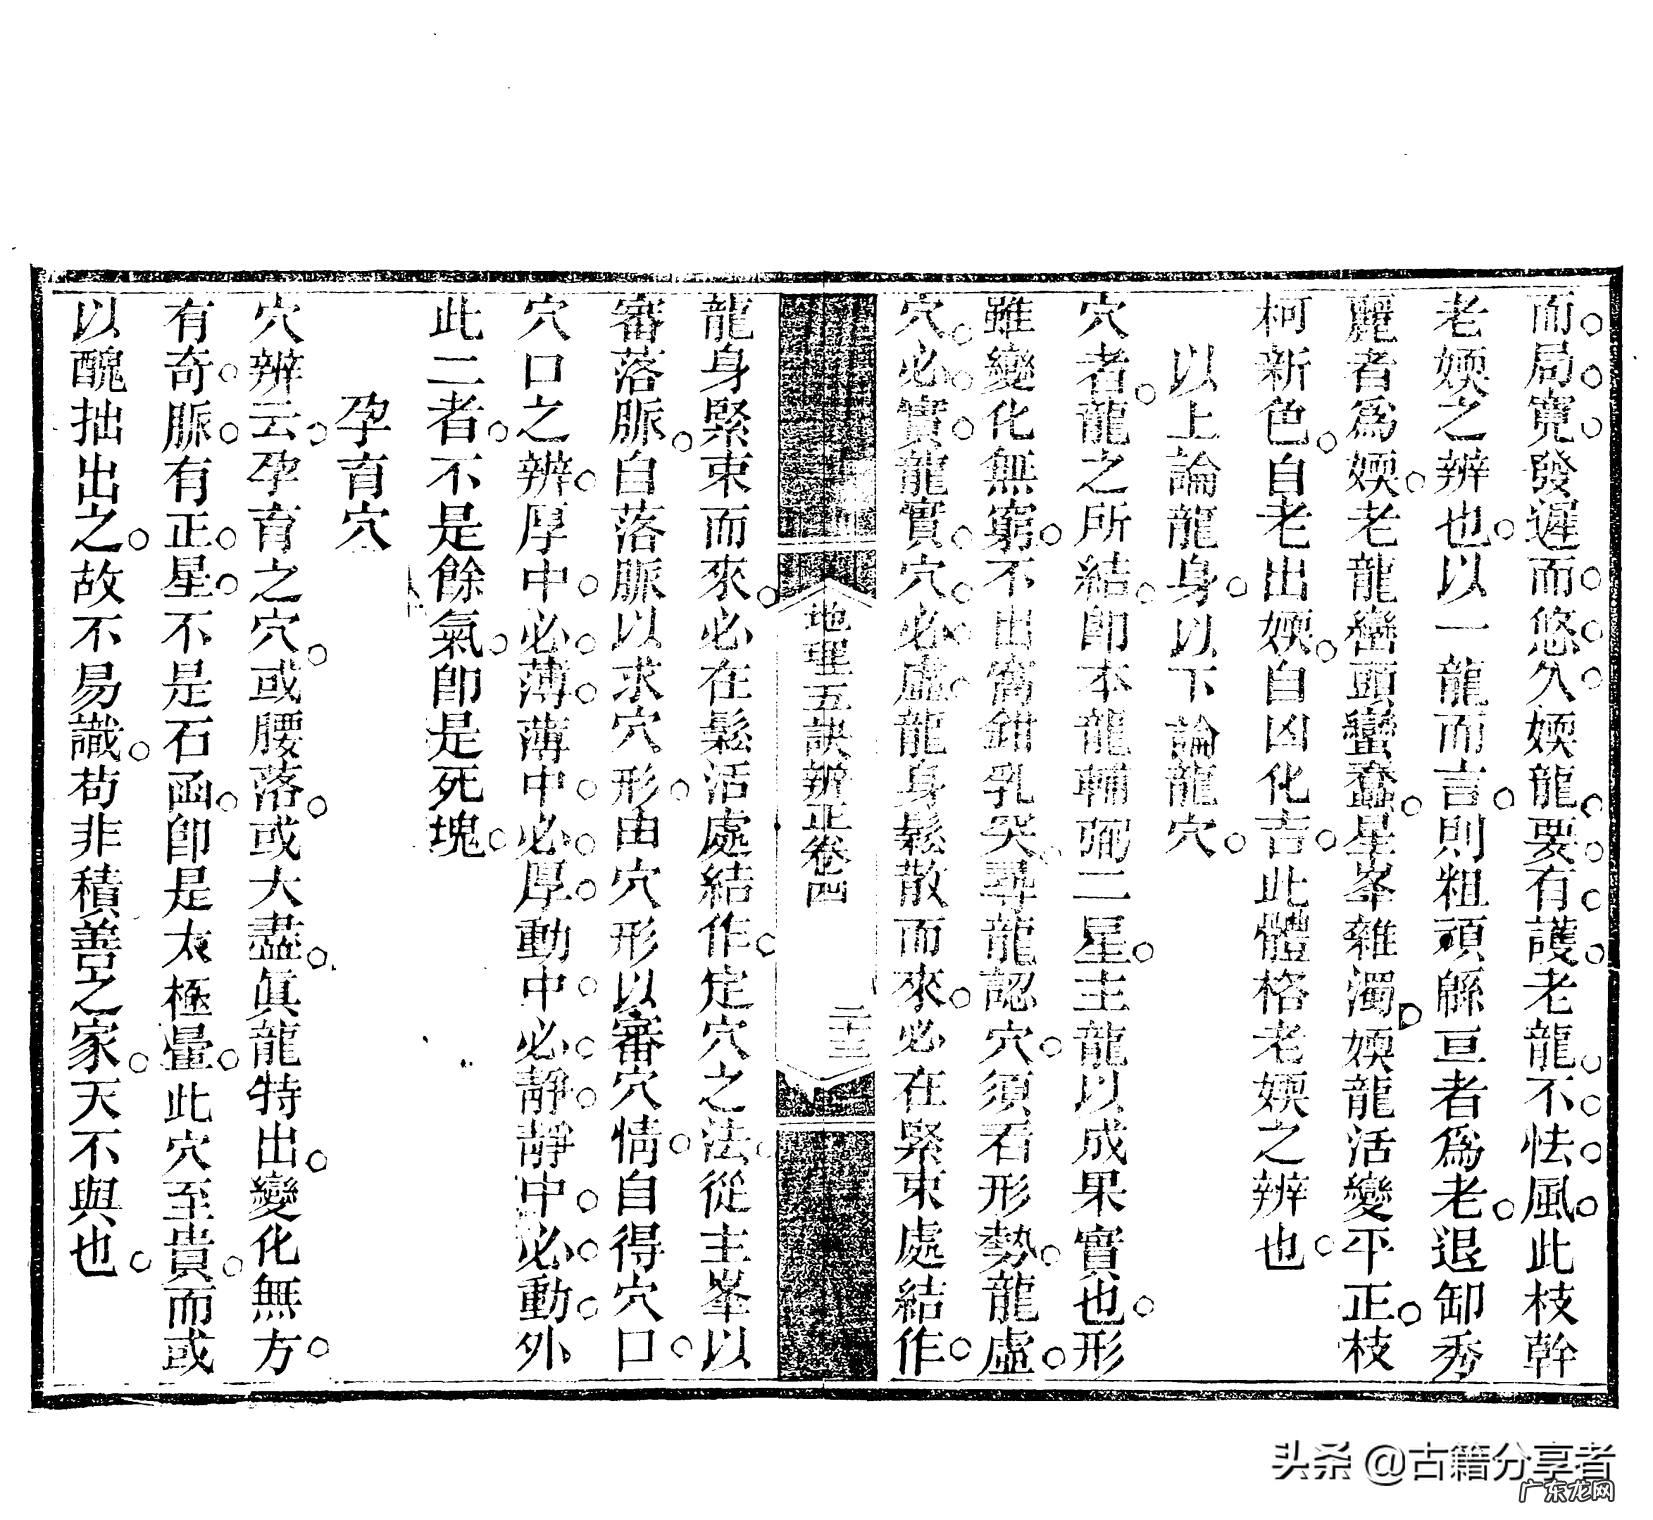 而局寬發遲而悠久媆龍要有護老龍不怯風此枝幹
老媆之辨也以一龍而言則粗頑緜亘者爲老退卸秀
麗者爲媆老龍巒頭蠻蠢星峯雜濁媆龍活變平正枝
柯新色自老出媆自凶化吉此體格老媆之辨也
以上論龍身以下論龍穴
穴者龍之所結卽本龍輔弼二星主龍以成果實也形
雖變化無窮不出窩鉗乳突尋龍認穴須看形勢龍虛
穴必實龍實穴必虛龍身鬆散而來必在緊束處結作
地理五訣辨正卷四
二十三
龍身緊束而來必在鬆活處結作定穴之法從主峯以
審落脈自落脈以求穴形由穴形以審穴情自得穴口
穴口之辨厚中必薄薄中必厚動中必靜靜中必動外
此二者不是餘氣卽是死塊
孕育穴
穴辨云孕育之穴或腰落或大盡眞龍特出變化無方
有奇脈有正星不是石函卽是太極暈此穴至貴而或
以醜拙出之故不易識苟非積善之家天不與也
头条 @古籍分享者
广东龙网